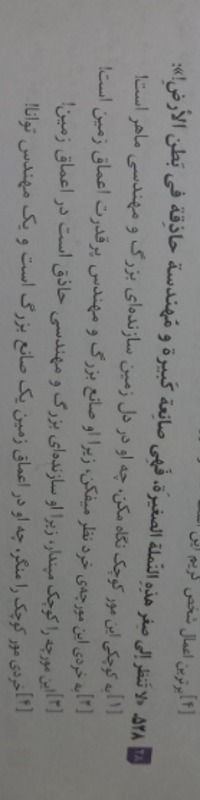 [۴] برترین اعمال شخص کریم این
۲۸ ۵۲۸. «لا تَنظر إلی صِغر هذِه النّملة الصغیرة، فَهی صانِعة کَبیرة و مُهندسة حاذِقة فی بَطن الأرض!»:
[۱] به کوچکی این مور کوچک نگاه مکن، چه او در دل زمین سازنده‌ای بزرگ و مهندسی ماهر است!
[۲] به خردی این مورچه‌ی خرد نظر میفکن، زیرا او صانع بزرگ و مهندس پرقدرت اعماق زمین است!
[۳] این مورچه را کوچک مپندار، زیرا او سازنده‌ای بزرگ و مهندسی حاذق است در اعماق زمین!
[۴] خردی مور کوچک را منگر، چه او در اعماق زمین یک صانع بزرگ است و یک مهندس توانا!